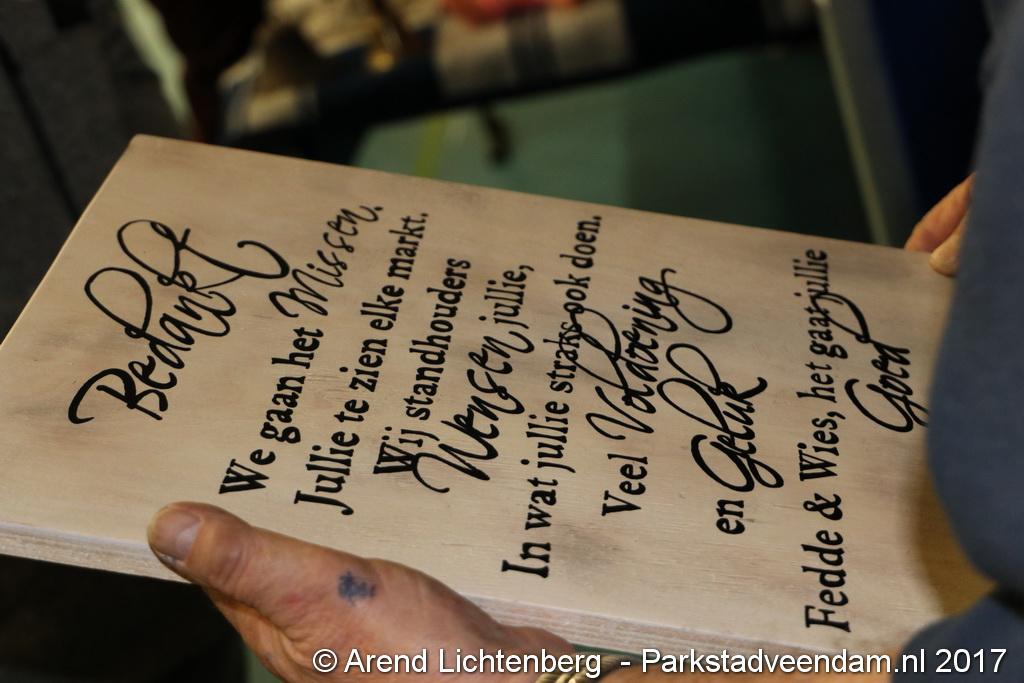 Bedankt
We gaan het Missen.
Jullie te zien elke markt.
Wij standhouders
Wensen jullie,
In wat jullie straks ook doen.
Veel Voldoening
en Geluk
Fedde & Wies, het gaat jullie
Goed
© Arend Lichtenberg - Parkstadveendam.nl 2017